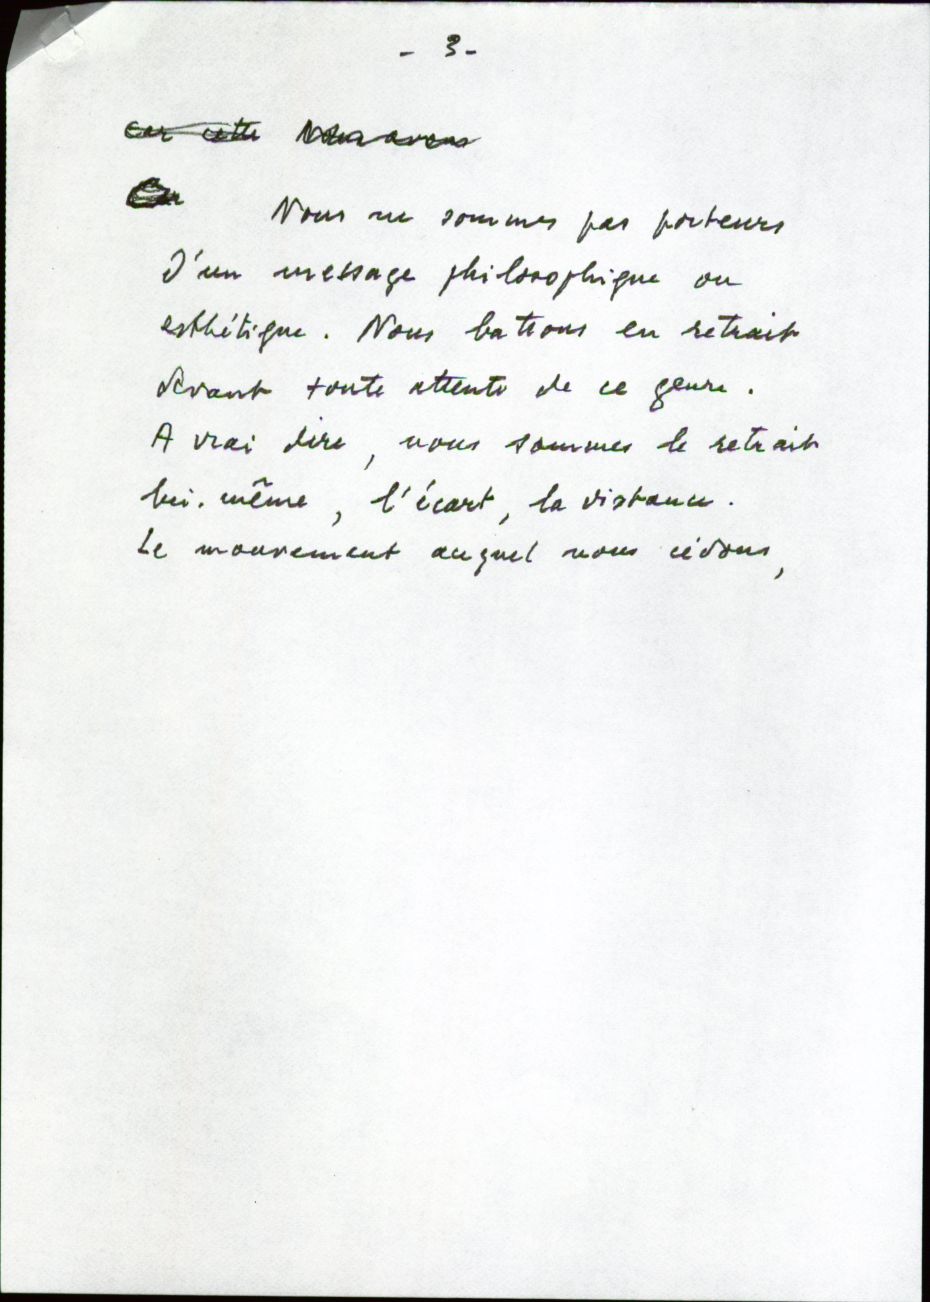 - 3 -
Car cette Nous avons
Car
Nous ne sommes pas porteurs
d'un message philosophique ou
esthétique. Nous battons en retrait
devant toute attente de ce genre.
A vrai dire, nous sommes le retrait
lui-même, l'écart, la distance.
Le mouvement auquel nous cédons,